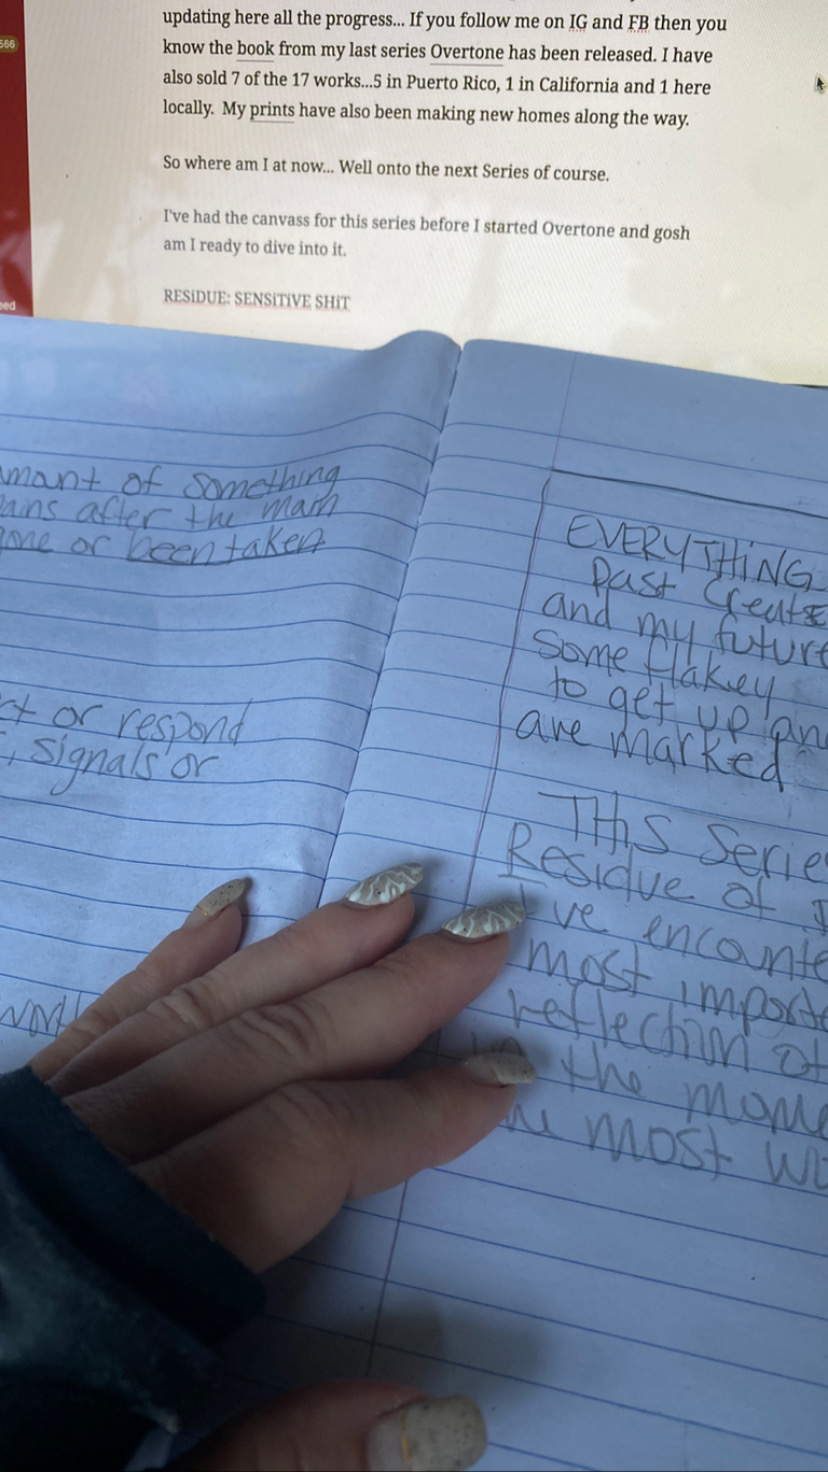 566
updating here all the progress... If you follow me on IG and FB then you
know the book from my last series Overtone has been released. I have
also sold 7 of the 17 works...5 in Puerto Rico, 1 in California and 1 here
locally. My prints have also been making new homes along the way.
So where am I at now... Well onto the next Series of course.
I've had the canvass for this series before I started Overtone and gosh
am I ready to dive into it.
RESiDUE: SENSiTiVE SHiT
mant of something
ains after the main
one or been taken
ct or respond
, signals or
EVERYTHiNG
past create
and my future
some flakey
to get up an
are marked
THis serie
Residue of I
I've encounte
most importa
reflection of
the mome
most wi